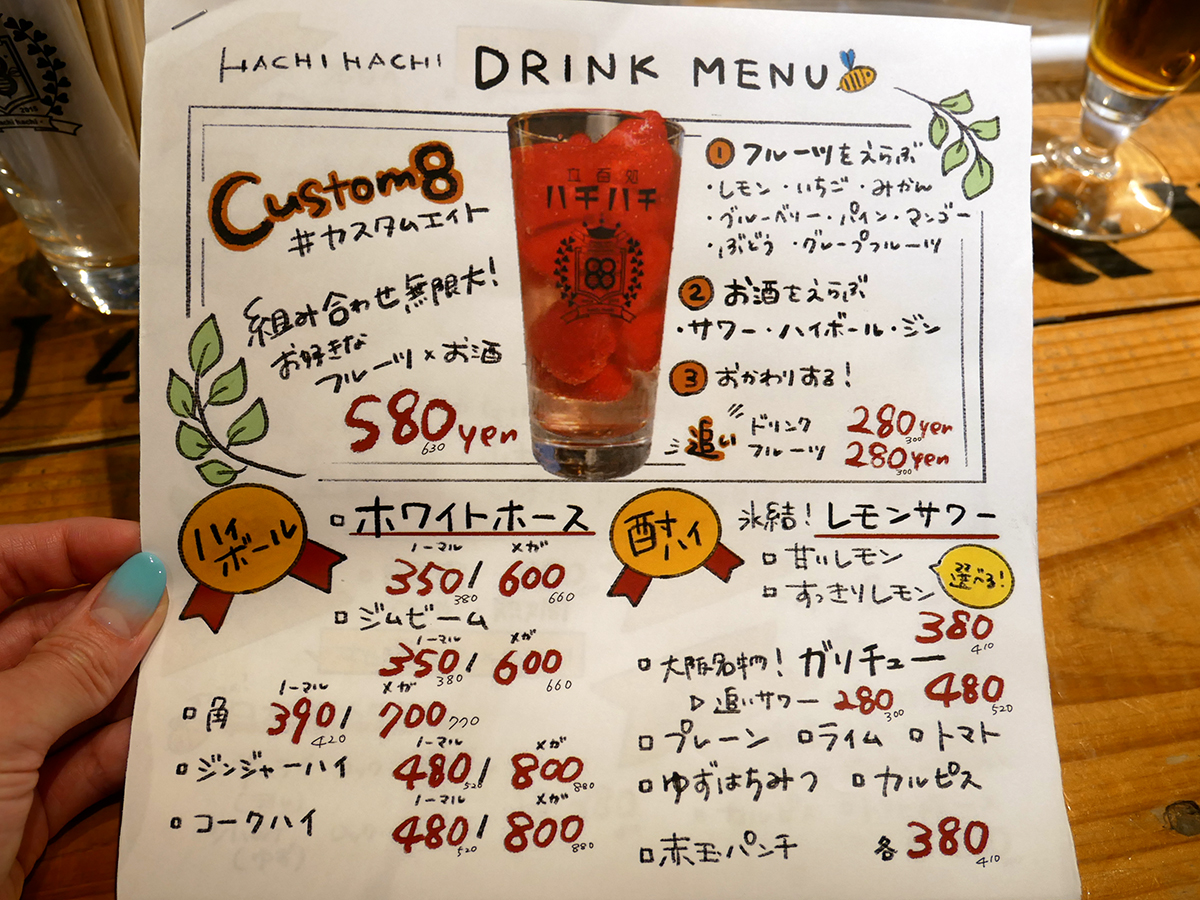 HACHI HACHI DRINK MENU
Custom8
#カスタムエイト
組み合わせ無限大!
お好きな
フルーツ×お酒
580yen
630
ハチハチ
88
① フルーツをえらぶ
・レモン ・いちご ・みかん
・ブルーベリー ・パイン ・マンゴー
・ぶどう ・グレープフルーツ
② お酒をえらぶ
・サワー ・ハイボール ・ジン
③ おかわりする!
追い ドリンク 280yen
300
フルーツ 280yen
300
ハイボール
ホワイトホース
ノーマル メガ
350 / 600
380 660
ジムビーム
ノーマル メガ
350 / 600
380 660
ノーマル メガ
角 390 / 700
420 770
ノーマル メガ
ジンジャーハイ 480 / 800
520 880
ノーマル メガ
コークハイ 480 / 800
520 880
酎ハイ
氷結! レモンサワー
甘いレモン
すっきりレモン
選べる!
380
410
大阪名物! ガリチュー 480
520
▷ 追いサワー 280
300
プレーン ライム トマト
ゆずはちみつ カルピス
赤玉パンチ 各380
410
2018